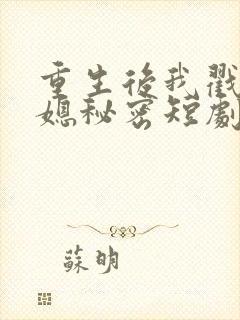 重生後我戳
媳秘密短劇
蘇明